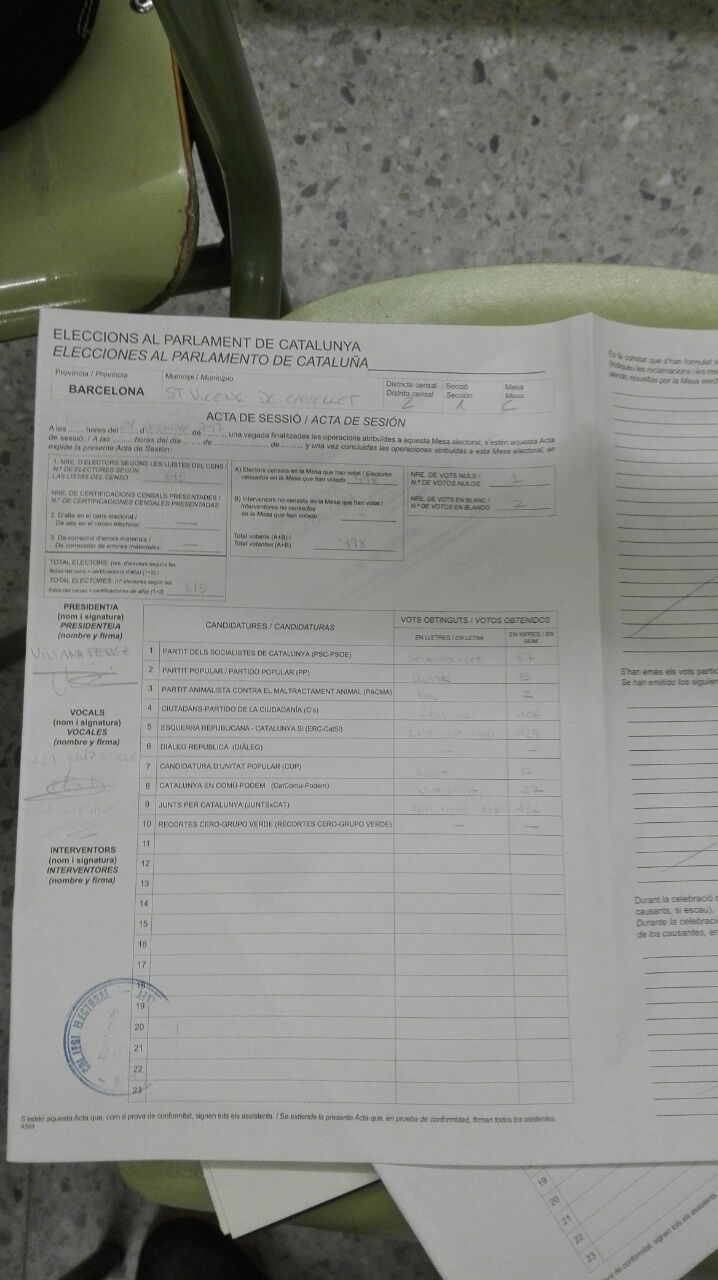 ELECCIONS AL PARLAMENT DE CATALUNYA
ELECCIONES AL PARLAMENTO DE CATALUÑA
Província / Provincia
Municipi / Municipio
Districte censal
Distrito censal
Secció
Sección
Mesa
Mesa
BARCELONA
ST VICENÇ DE CASTELLET
2
1
C
ACTA DE SESSIÓ / ACTA DE SESIÓN
A les ...... hores del
una vegada finalitzades les operacions atribuïdes a aquesta Mesa electoral, s'estén aquesta Acta
de sessió: / A las ........ horas del día ........ de ........ de ........, y una vez concluidas las operaciones atribuidas a esta Mesa electoral, se
expide la presente Acta de Sesión:
1. NRE. D'ELECTORS SEGONS LES LLISTES DEL CENS /
N.º DE ELECTORES SEGÚN
LAS LISTAS DEL CENSO 615
NRE. DE CERTIFICACIONS CENSALS PRESENTADES /
N.º DE CERTIFICACIONES CENSALES PRESENTADAS
2. D'alta en el cens electoral /
De alta en el censo electoral: —
3. De correcció d'errors materials /
De corrección de errores materiales: —
TOTAL ELECTORS: (nre. d'electors segons les
llistes del cens + certificacions d'alta) (1+2) /
TOTAL ELECTORES: (nº electores según las
listas del censo + certificaciones de alta) (1+2) 615
A) Electors censats en la Mesa que han votat / Electores
censados en la Mesa que han votado 498
B) Interventors no censats en la Mesa que han votat /
Interventores no censados
en la Mesa que han votado —
Total votants (A+B) /
Total votantes (A+B) 498
NRE. DE VOTS NULS /
N.º DE VOTOS NULOS 1
NRE. DE VOTS EN BLANC /
N.º DE VOTOS EN BLANCO 2
PRESIDENT/A
(nom i signatura)
PRESIDENTE/A
(nombre y firma)
VIVIANA PEREZ
VOCALS
(nom i signatura)
VOCALES
(nombre y firma)
INTERVENTORS
(nom i signatura)
INTERVENTORES
(nombre y firma)
CANDIDATURES / CANDIDATURAS
VOTS OBTINGUTS / VOTOS OBTENIDOS
EN LLETRES / EN LETRA
EN XIFRES / EN NÚM.
1 PARTIT DELS SOCIALISTES DE CATALUNYA (PSC-PSOE) seixanta-set 67
2 PARTIT POPULAR / PARTIDO POPULAR (PP) Quinze 15
3 PARTIT ANIMALISTA CONTRA EL MALTRACTAMENT ANIMAL (PACMA) Dos 2
4 CIUTADANS-PARTIDO DE LA CIUDADANÍA (C's) cent sis 106
5 ESQUERRA REPUBLICANA - CATALUNYA SI (ERC-CatSí) 129
6 DIÀLEG REPUBLICÀ (DIÀLEG) — —
7 CANDIDATURA D'UNITAT POPULAR (CUP)
8 CATALUNYA EN COMÚ-PODEM (CatComú-Podem) Vint-i-set 27
9 JUNTS PER CATALUNYA (JUNTSxCAT) cent trenta dos 132
10 RECORTES CERO-GRUPO VERDE (RECORTES CERO-GRUPO VERDE) — —
11
12
13
14
15
16
17
18
19
20
21
22
23
COL·LEGI ELECTORAL
S'estén aquesta Acta que, com a prova de conformitat, signen tots els assistents. / Se extiende la presente Acta que, en prueba de conformidad, firman todos los asistentes
ASM
Es fa constar que s'han formulat
(indiqueu les reclamacions i les
siendo resueltas por la Mesa
S'han emès els vots
Se han emitido los
Durant la celebració
causants, si escau).
Durante la
de los causantes, en
19
20
21
22
23
de conformitat, signen tots els assistents